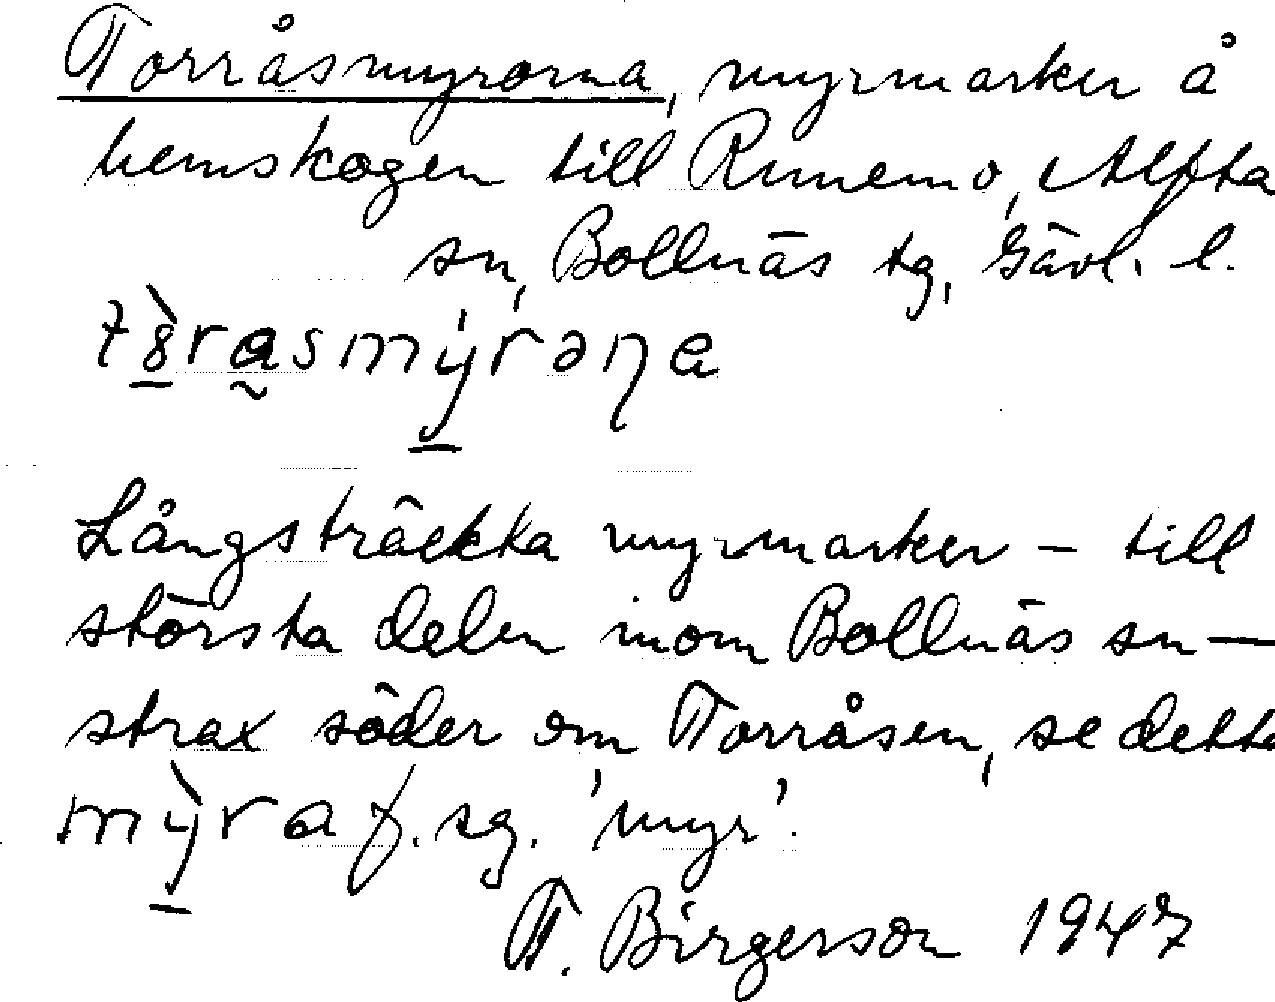 Torråsmyrorna, myrmarker å
hemskogen till Runemo, Alfta
sn, Bollnäs tg, Gävl. l.
t8̱̀ra̰smý̱rəƞa
Långsträckta myrmarker – till
största delen inom Bollnäs sn –
strax söder om Torråsen, se detta
mỳ̱ra f. sg. 'myr'.
T. Birgerson 1947